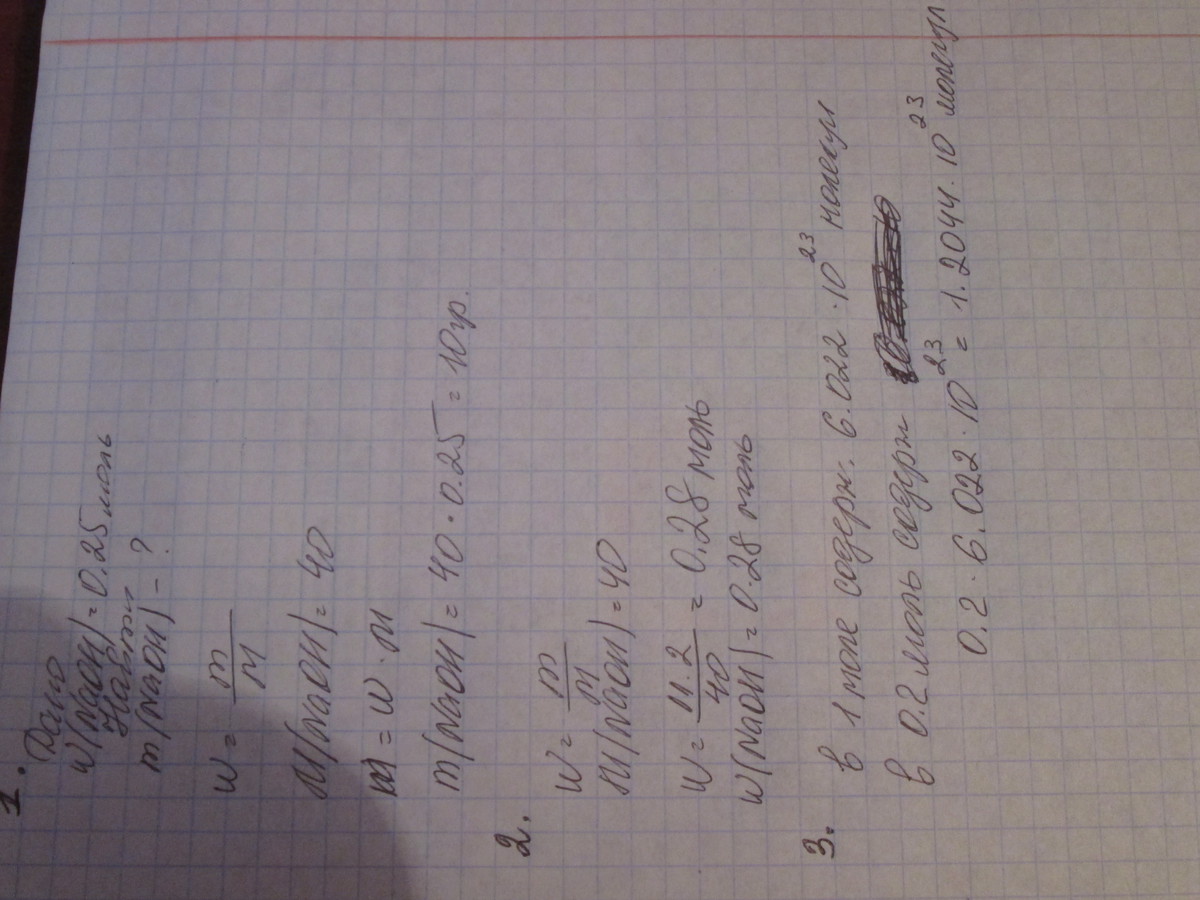 1.
Дано
W(NaOH) = 0.25 моль
Найти
m(NaOH) - ?
W = m/M
M(NaOH) = 40
m = W · M
m(NaOH) = 40 · 0.25 = 10 гр.
2.
W = m/M
M(NaOH) = 40
W = 11.2/40 = 0.28 моль
W(NaOH) = 0.28 моль
3.
в 1 моле содерж. 6.022 · 10²³ молекул
в 0.2 моль содерж
0.2 · 6.022 · 10²³ = 1.2044 · 10²³ молекул